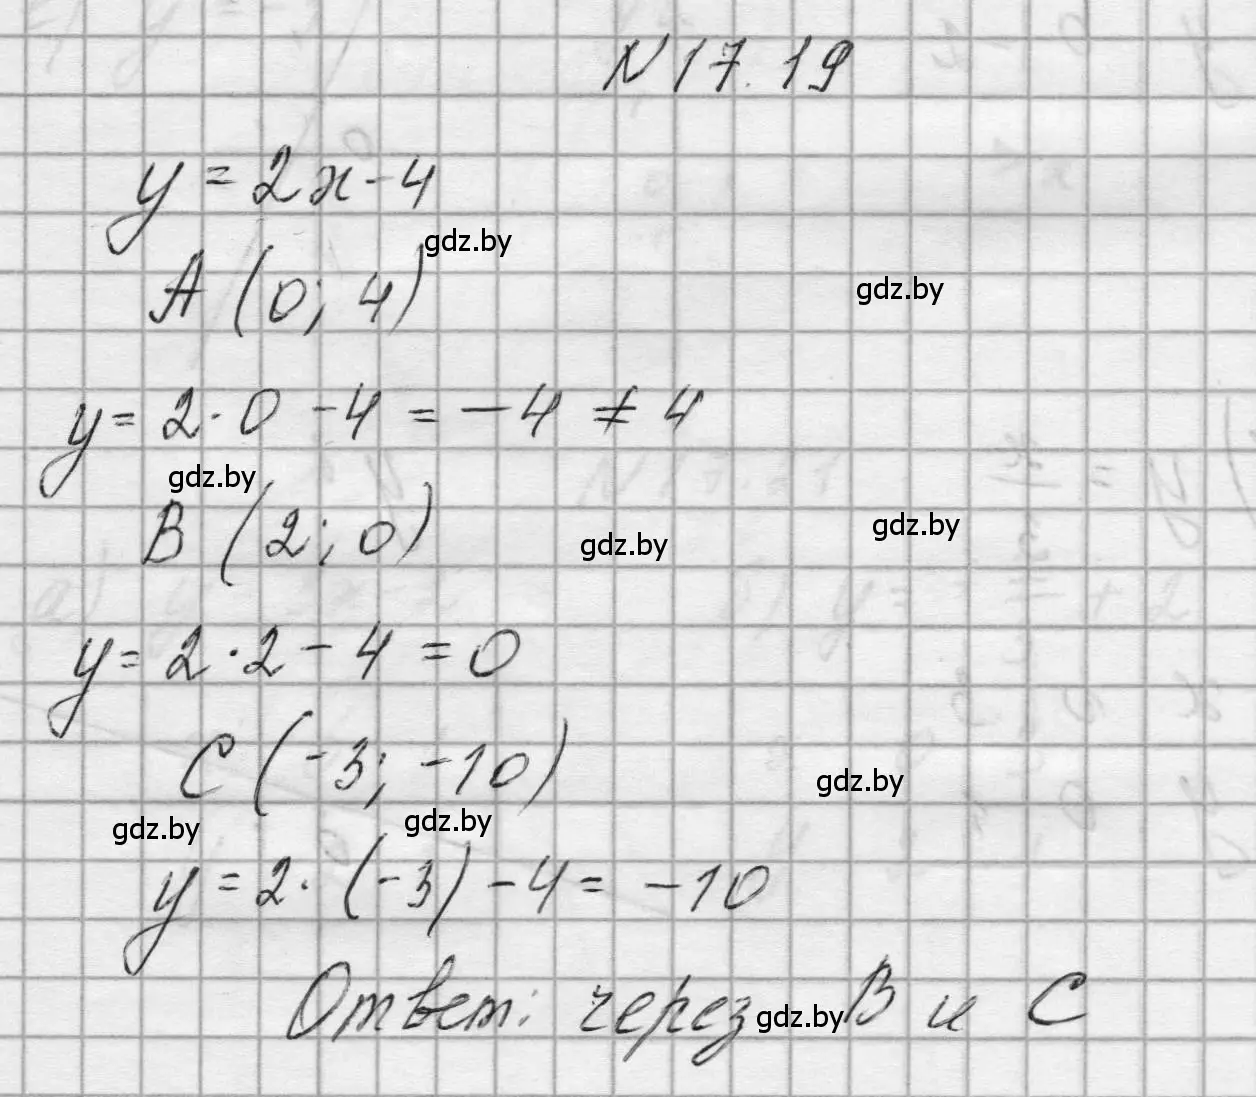 N 17.19
y = 2x - 4
gdz.by
A (0; 4)
gdz.by
y = 2 · 0 - 4 = -4 ≠ 4
gdz.by
B (2; 0)
gdz.by
gdz.by
y = 2 · 2 - 4 = 0
C (-3; -10)
gdz.by
gdz.by
gdz.by
y = 2 · (-3) - 4 = -10
Ответ: через B и C
gdz.by